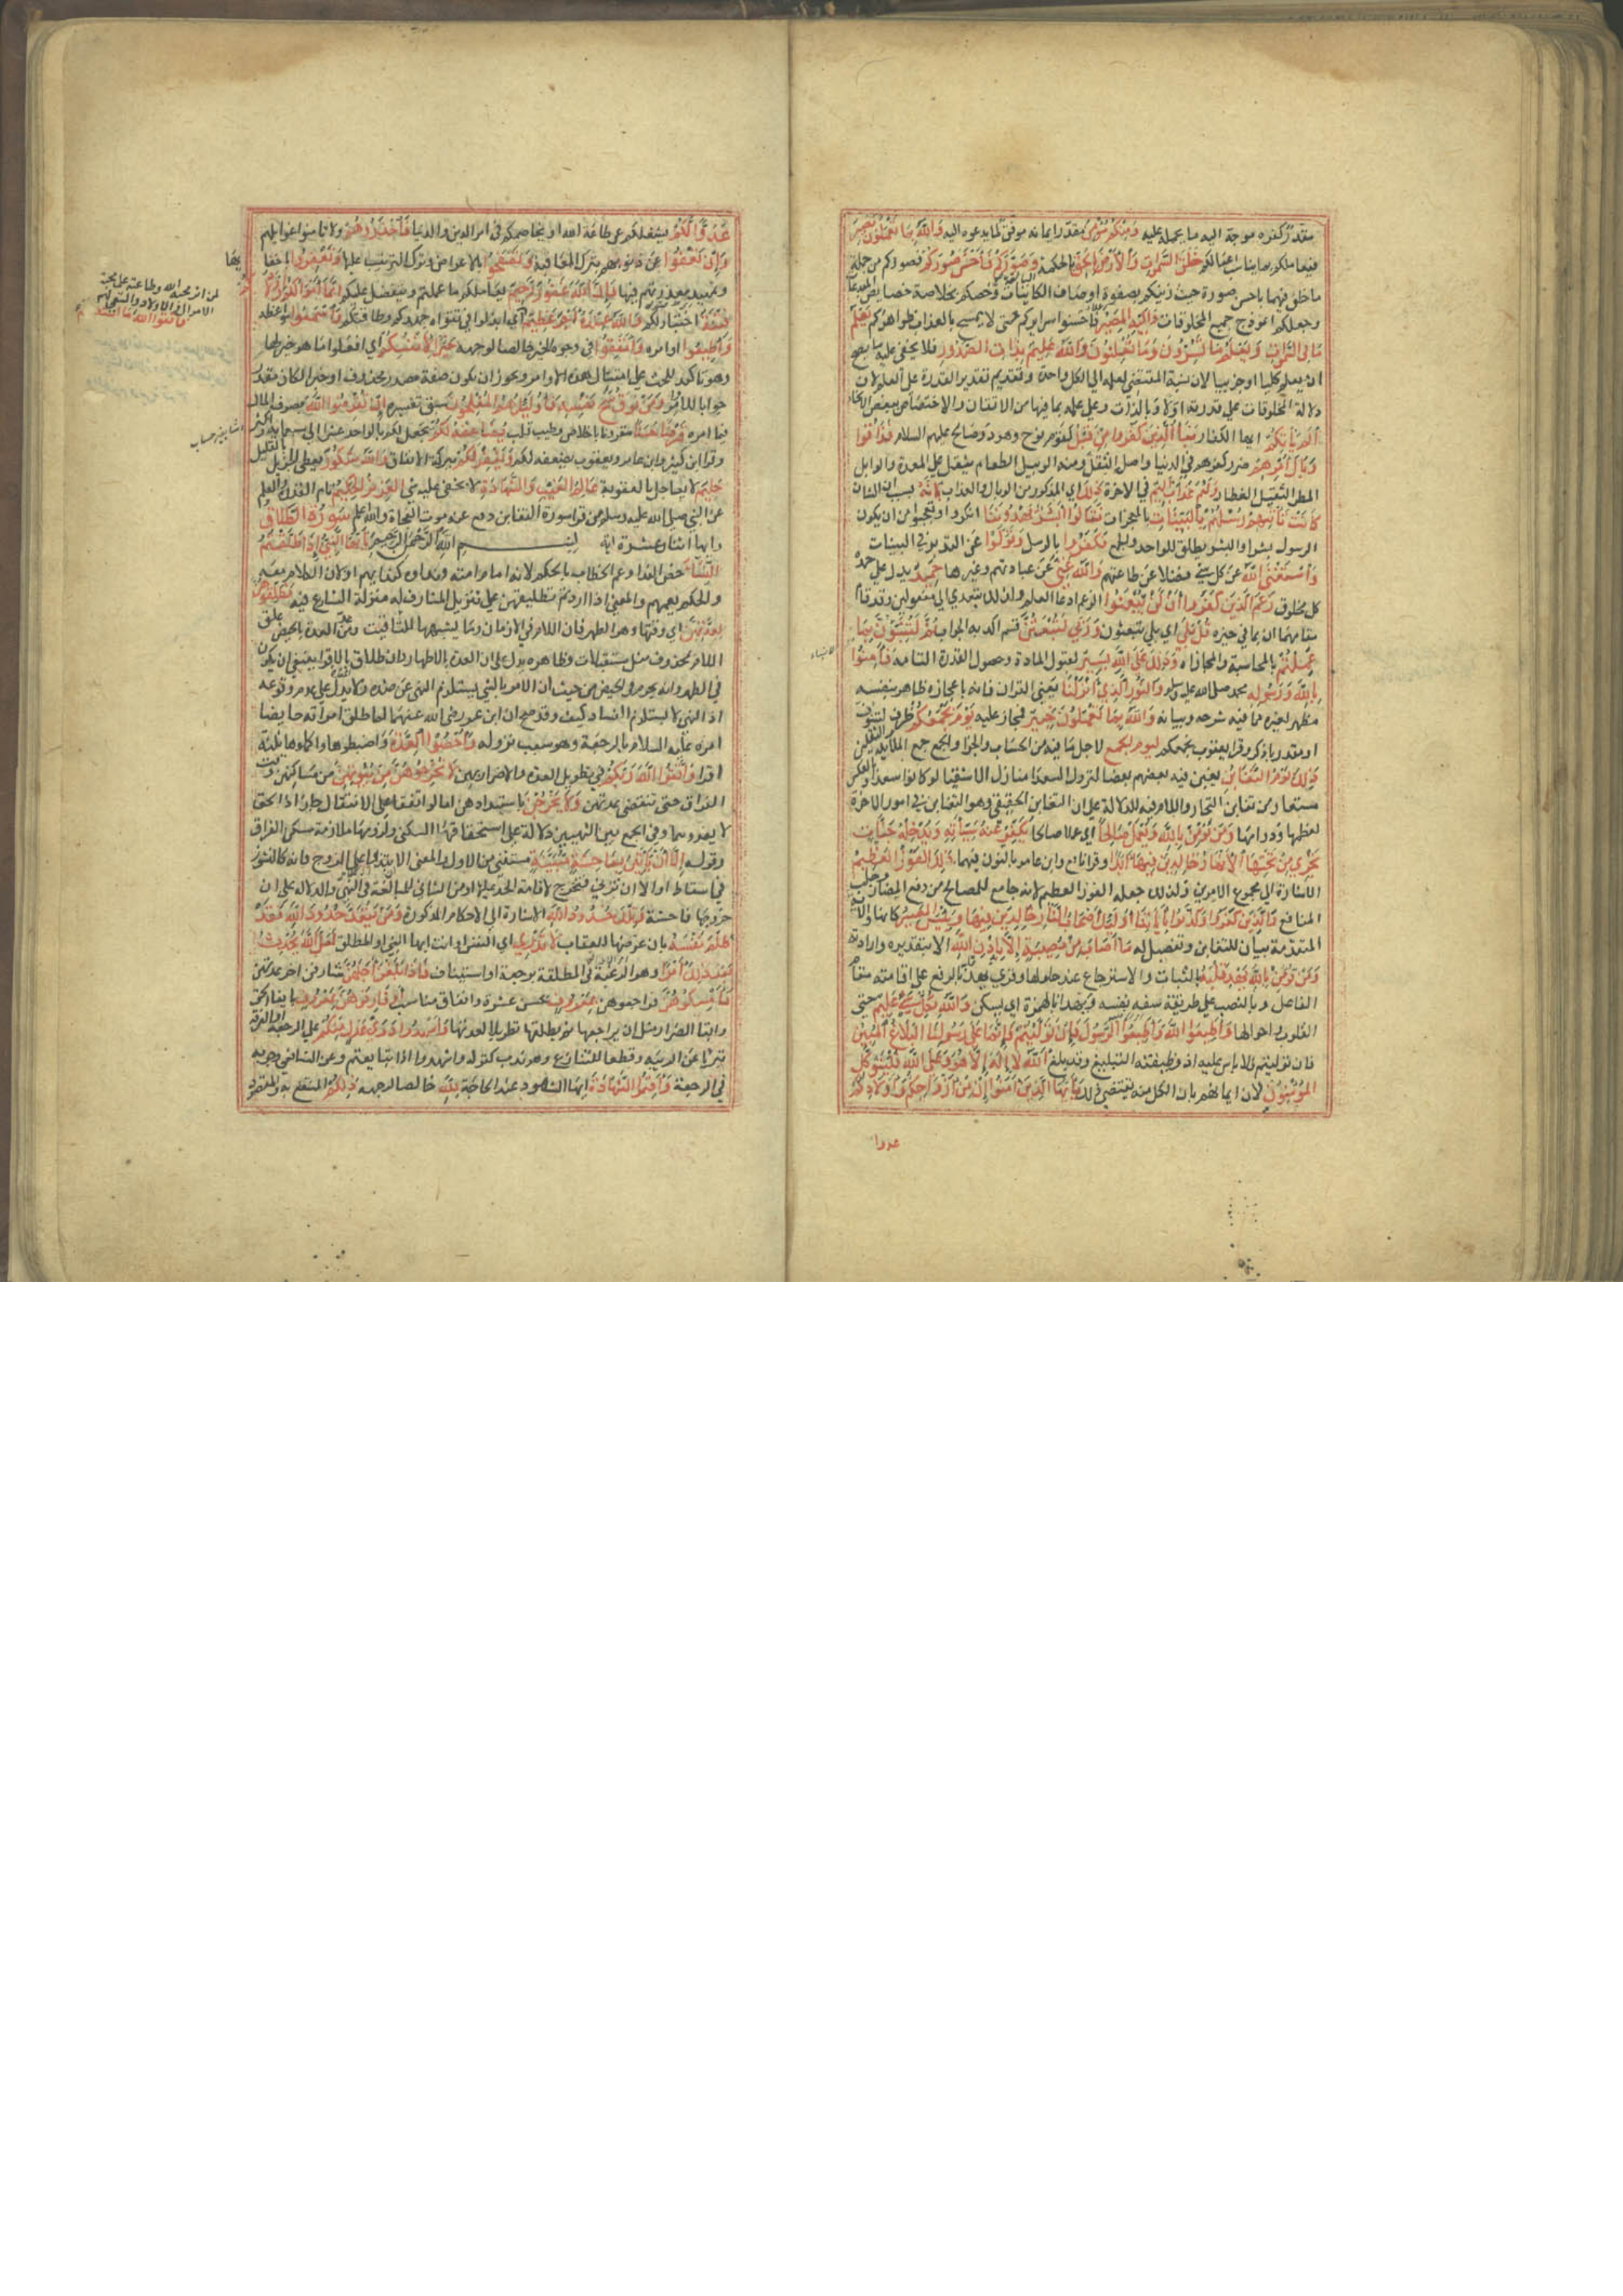 مقدر كفره موجه اليه ما يحمله عليه وَمِنْكُمْ مُؤْمِنٌ مقدر ايمانه موفق لما يدعوه اليه وَاللَّهُ بِمَا تَعْمَلُونَ بَصِيرٌ
فيعاملكم بما يناسب اعمالكم خَلَقَ السَّمَوَاتِ وَالْأَرْضَ بِالْحَقِّ بالحكمة البالغة وَصَوَّرَكُمْ فَأَحْسَنَ صُوَرَكُمْ فصوركم من جملة
ما خلق فيهما باحسن صورة حيث زينكم بصفوة اوصاف الكاينات وخصكم بخلاصة خصايص المبدعات
وجعلكم انموذج جميع المخلوقات وَإِلَيْهِ الْمَصِيرُ فاحسنوا سرايركم حتى لا يمسخ بالعذاب ظواهركم يَعْلَمُ
مَا فِي السَّمَوَاتِ وَالْأَرْضِ وَيَعْلَمُ مَا تُسِرُّونَ وَمَا تُعْلِنُونَ وَاللَّهُ عَلِيمٌ بِذَاتِ الصُّدُورِ فلا يخفى عليه ما يصح
ان يعلم كليا او جزييا لان نسبة المقتضي لعلمه الى الكل واحدة وتقديم تقدير القدرة على العلم لان
دلالة المخلوقات على قدرته اولا وبالذات وعلى علمه بما فيها من الاتقان والاختصاص ببعض الانحاء
أَلَمْ يَأْتِكُمْ ايها الكفار نَبَأُ الَّذِينَ كَفَرُوا مِنْ قَبْلُ كقوم نوح وهود وصالح عليهم السلام فَذَاقُوا
وَبَالَ أَمْرِهِمْ ضرر كفرهم في الدنيا واصله الثقل ومنه الوبيل لطعام يثقل على المعدة والوابل
المطر الثقيل القطار وَلَهُمْ عَذَابٌ أَلِيمٌ في الاخرة ذَلِكَ اي المذكور من الوبال والعذاب بِأَنَّهُ بسبب ان الشان
كَانَتْ تَأْتِيهِمْ رُسُلُهُمْ بِالْبَيِّنَاتِ بالمعجزات فَقَالُوا أَبَشَرٌ يَهْدُونَنَا انكروا وتعجبوا من ان يكون
الرسول بشرا والبشر يطلق للواحد والجمع فَكَفَرُوا بالرسل وَتَوَلَّوْا عن التدبر في البينات
وَاسْتَغْنَى اللَّهُ عن كل شي فضلا عن طاعتهم وَاللَّهُ غَنِيٌّ عن عبادتهم وغيرها حَمِيدٌ يدل على حمده
كل مخلوق زَعَمَ الَّذِينَ كَفَرُوا أَنْ لَنْ يُبْعَثُوا الزعم ادعا العلم ولذلك يتعدى الى مفعولين وقد قام
مقامهما ان بما في حيزه قُلْ بَلَى اي بلى تبعثون وَرَبِّي لَتُبْعَثُنَّ قسم اكد به الجواب ثُمَّ لَتُنَبَّؤُنَّ بِمَا
عَمِلْتُمْ بالمحاسبة والمجازاه وَذَلِكَ عَلَى اللَّهِ يَسِيرٌ لقبول المادة وحصول القدرة التامة فَآمِنُوا
بِاللَّهِ وَرَسُولِهِ محمد صلى الله عليه وسلم وَالنُّورِ الَّذِي أَنْزَلْنَا يعني القران فانه باعجازه ظاهر بنفسه
مظهر لغيره مما فيه شرحه وبيانه وَاللَّهُ بِمَا تَعْمَلُونَ خَبِيرٌ فمجاز عليه يَوْمَ يَجْمَعُكُمْ ظرف لتنبؤن
او مقدر باذكر وقرا يعقوب نجمعكم لِيَوْمِ الْجَمْعِ لاجل ما فيه من الحساب والجزا والجمع جمع الملايكة والثقلين
ذَلِكَ يَوْمُ التَّغَابُنِ يغبن فيه بعضهم بعضا لنزول السعدا منازل الاشقيا لو كانوا سعدا وبالعكس
مستعار من تغابن التجار واللام فيه للدلالة على ان التغابن الحقيقي وهو التغابن في امور الاخرة
لعظمها ودوامها وَمَنْ يُؤْمِنْ بِاللَّهِ وَيَعْمَلْ صَالِحًا اي عملا صالحا يُكَفِّرْ عَنْهُ سَيِّئَاتِهِ وَيُدْخِلْهُ جَنَّاتٍ
تَجْرِي مِنْ تَحْتِهَا الْأَنْهَارُ خَالِدِينَ فِيهَا أَبَدًا وقرا نافع وابن عامر بالنون فيهما ذَلِكَ الْفَوْزُ الْعَظِيمُ
الاشارة الى مجموع الامرين ولذلك جعله الفوز العظيم لانه جامع للمصالح من دفع المضار وجلب
المنافع وَالَّذِينَ كَفَرُوا وَكَذَّبُوا بِآيَاتِنَا أُولَئِكَ أَصْحَابُ النَّارِ خَالِدِينَ فِيهَا وَبِئْسَ الْمَصِيرُ كانها والاية
المتقدمة بيان للتغابن وتفصيل له مَا أَصَابَ مِنْ مُصِيبَةٍ إِلَّا بِإِذْنِ اللَّهِ الا بتقديره وارادته
وَمَنْ يُؤْمِنْ بِاللَّهِ يَهْدِ قَلْبَهُ للثبات والاسترجاع عند حلولها وقري يهد قلبه بالرفع على اقامته مقام
الفاعل وبالنصب على طريقة سفه نفسه ويهدا بالهمزة اي يسكن وَاللَّهُ بِكُلِّ شَيْءٍ عَلِيمٌ حتى
القلوب واحوالها وَأَطِيعُوا اللَّهَ وَأَطِيعُوا الرَّسُولَ فَإِنْ تَوَلَّيْتُمْ فَإِنَّمَا عَلَى رَسُولِنَا الْبَلَاغُ الْمُبِينُ
فان توليتم فلا باس عليه اذ وظيفته التبليغ وقد بلغ اللَّهُ لَا إِلَهَ إِلَّا هُوَ وَعَلَى اللَّهِ فَلْيَتَوَكَّلِ
الْمُؤْمِنُونَ لان ايمانهم بان الكل منه يقتضي ذلك يَا أَيُّهَا الَّذِينَ آمَنُوا إِنَّ مِنْ أَزْوَاجِكُمْ وَأَوْلَادِكُمْ
عدوا
عَدُوًّا لَكُمْ يشغلكم عن طاعة الله او يخاصمكم في امر الدين والدنيا فَاحْذَرُوهُمْ ولا تامنوا غوايلهم
وَإِنْ تَعْفُوا عن ذنوبهم بترك المعاقبة وَتَصْفَحُوا بالاعراض وترك التثريب عليها وَتَغْفِرُوا باخفايها
وتمهيد معذرتهم فيها فَإِنَّ اللَّهَ غَفُورٌ رَحِيمٌ يعاملكم ما عملتم ويتفضل عليكم إِنَّمَا أَمْوَالُكُمْ وَأَوْلَادُكُمْ
فِتْنَةٌ اختبار لكم وَاللَّهُ عِنْدَهُ أَجْرٌ عَظِيمٌ اي ابذلوا في تقواه جهدكم وطاقتكم وَاسْمَعُوا مواعظه
وَأَطِيعُوا اوامره وَأَنْفِقُوا في وجوه الخير خالصا لوجهه خَيْرًا لِأَنْفُسِكُمْ اي افعلوا ما هو خير لها
وهو تاكيد للحث على امتثال هذه الاوامر ويجوز ان يكون صفة مصدر محذوف او خبرا لكان مقدر
جوابا للامر وَمَنْ يُوقَ شُحَّ نَفْسِهِ فَأُولَئِكَ هُمُ الْمُفْلِحُونَ سبق تفسيره إِنْ تُقْرِضُوا اللَّهَ بصرف المال
فيما امره قَرْضًا حَسَنًا مقرونا باخلاص وطيب قلب يُضَاعِفْهُ لَكُمْ يجعل لكم بالواحد عشرا الى سبعماية واكثر
وقرا ابن كثير وابن عامر ويعقوب يضعفه لكم وَيَغْفِرْ لَكُمْ ببركة الانفاق وَاللَّهُ شَكُورٌ يعطي الجزيل بالقليل
حَلِيمٌ لا يعاجل بالعقوبة عَالِمُ الْغَيْبِ وَالشَّهَادَةِ لا يخفى عليه شي الْعَزِيزُ الْحَكِيمُ تام القدرة والعلم
عن النبي صلى الله عليه وسلم من قرا سورة التغابن دفع عنه موت الفجاة والله اعلم سُورَةُ الطَّلَاقِ
وايها اثنا وعشرة اية بِسْمِ اللَّهِ الرَّحْمَنِ الرَّحِيمِ يَا أَيُّهَا النَّبِيُّ إِذَا طَلَّقْتُمُ
النِّسَاءَ خص الندا وعم الخطاب بالحكم لانه امام امته فنداوه كندايهم او لان الكلام معه
والحكم يعمهم والمعنى اذا اردتم تطليقهن على تنزيل المشارف له منزلة الشارع فيه فَطَلِّقُوهُنَّ
لِعِدَّتِهِنَّ اي وقتها وهو الطهر فان اللام في الازمان وما يشبهها للتاقيت ومن عد العدة بالحيض علق
اللام بمحذوف مثل مستقبلات وظاهره يدل على ان العدة بالاطهار وان طلاق المعتدة بالاقرا ينبغي ان يكون
في الطهر وانه يحرم في الحيض من حيث ان الامر بالشي يستلزم النهي عن ضده ولا يدل على عدم وقوعه
اذ النهي لا يستلزم الفساد كيف وقد صح ان ابن عمر رضي الله عنهما لما طلق امراته حايضا
امره عليه السلام بالرجعة وهو سبب نزوله وَأَحْصُوا الْعِدَّةَ واضبطوها واكملوها ثلثة
اقرا وَاتَّقُوا اللَّهَ رَبَّكُمْ في تطويل العدة والاضرار بهن لَا تُخْرِجُوهُنَّ مِنْ بُيُوتِهِنَّ من مساكنهن وقت
الفراق حتى تنقضي عدتهن وَلَا يَخْرُجْنَ باستبدادهن اما لو اتفقا على الانتقال جاز اذ الحق
لا يعدوهما وفي الجمع بين النهيين دلالة على استحقاقها السكنى ولزومها ملازمة مسكن الفراق
وقوله إِلَّا أَنْ يَأْتِينَ بِفَاحِشَةٍ مُبَيِّنَةٍ مستثنى من الاول والمعنى الا ان تبذو على الزوج فانه كالنشوز
في اسقاط او الا ان تزني فتخرج لاقامة الحد عليها او من الثاني للمبالغة في النهي والدلالة على ان
خروجها فاحشة وَتِلْكَ حُدُودُ اللَّهِ الاشارة الى الاحكام المذكورة وَمَنْ يَتَعَدَّ حُدُودَ اللَّهِ فَقَدْ
ظَلَمَ نَفْسَهُ بان عرضها للعقاب لَا تَدْرِي اي النفس او انت ايها النبي او المطلق لَعَلَّ اللَّهَ يُحْدِثُ
بَعْدَ ذَلِكَ أَمْرًا وهو الرغبة في المطلقة برجعة او استيناف فَإِذَا بَلَغْنَ أَجَلَهُنَّ شارفن اخر عدتهن
فَأَمْسِكُوهُنَّ فراجعوهن بِمَعْرُوفٍ بحسن عشرة وانفاق مناسب أَوْ فَارِقُوهُنَّ بِمَعْرُوفٍ بايفا الحق
واتقا الضرار مثل ان يراجعها ثم يطلقها تطويلا لعدتها وَأَشْهِدُوا ذَوَيْ عَدْلٍ مِنْكُمْ على الرجعة او الفرقة
تبريا عن الريبة وقطعا للتنازع وهو ندب كقوله واشهدوا اذا تبايعتم وعن الشافعي وجوبه
في الرجعة وَأَقِيمُوا الشَّهَادَةَ ايها الشهود عند الحاجة لِلَّهِ خالصا لوجهه ذَلِكُمْ
لمن اثر محبة الله وطاعته على محبة
الاموال والاولاد والسعي لهم
فَاتَّقُوا اللَّهَ مَا اسْتَطَعْتُمْ